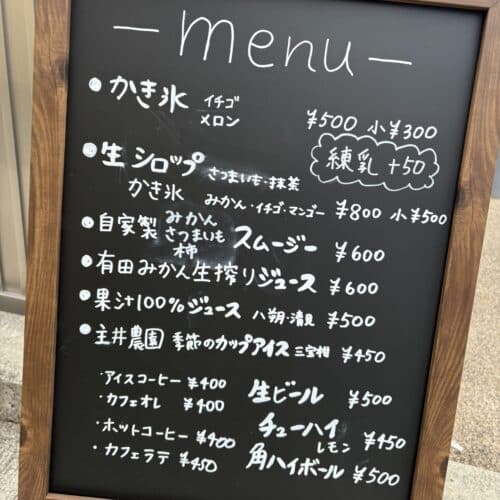 — menu —
• かき氷 イチゴ
メロン ¥500 小¥300
練乳 +50
• 生シロップ さつまいも・抹茶
かき氷 みかん・イチゴ・マンゴー ¥800 小¥500
• 自家製 みかん さつまいも 柿 スムージー ¥600
• 有田みかん生搾りジュース ¥600
• 果汁100%ジュース 八朔・清見 ¥500
• 主井農園 季節のカップアイス 三宝柑 ¥450
・アイスコーヒー ¥400 生ビール ¥500
・カフェオレ ¥400 チューハイ レモン ¥450
・ホットコーヒー ¥400 角ハイボール ¥500
・カフェラテ ¥450